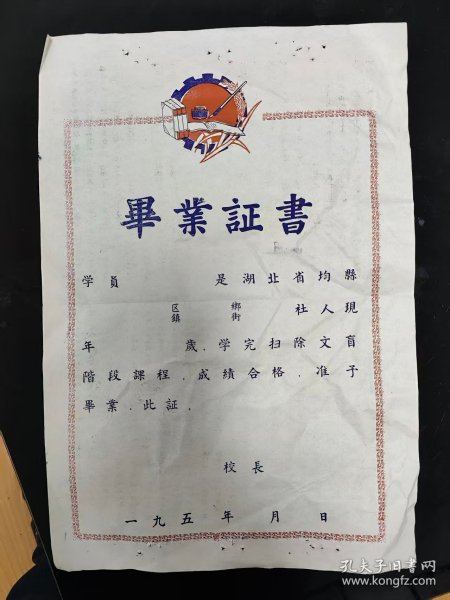 畢業証書
学員 是湖北省均縣
区鎮 鄉街 社人現
年 歲.学完扫除文盲
階段課程.成績合格.准予
畢業.此証.
校長
一九五 年 月 日
孔夫子旧书网
www.kongfz.com